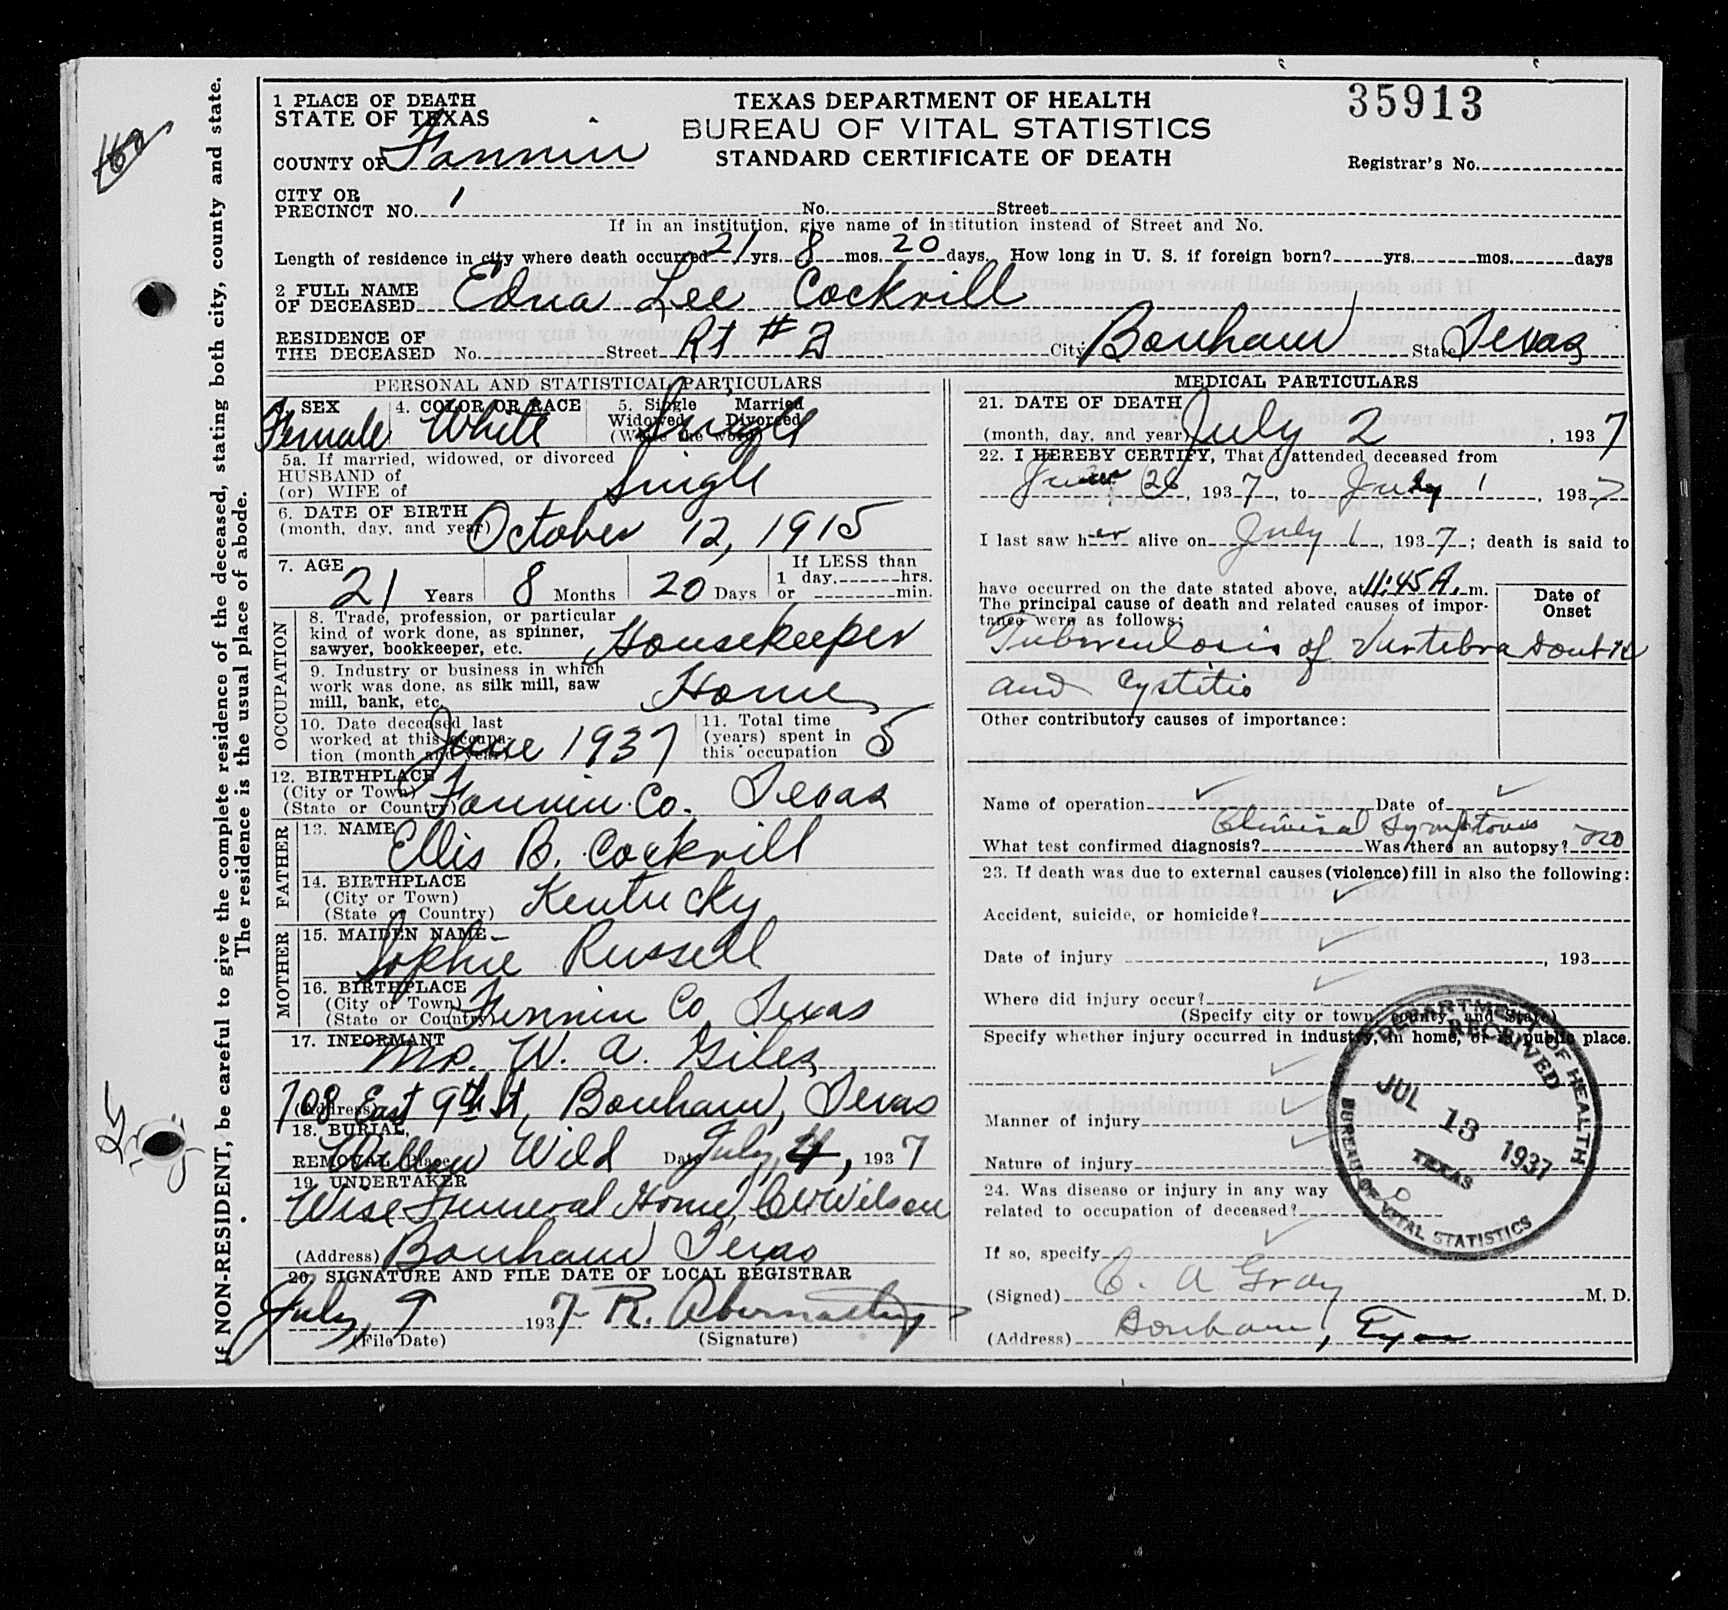 If NON-RESIDENT, be careful to give the complete residence of the deceased, stating both city, county and state.
The residence is the usual place of abode.
1 PLACE OF DEATH
STATE OF TEXAS
COUNTY OF Fannin
CITY OR
PRECINCT NO. 1 No. Street
TEXAS DEPARTMENT OF HEALTH
BUREAU OF VITAL STATISTICS
STANDARD CERTIFICATE OF DEATH
35913
Registrar's No.
If in an institution, give name of institution instead of Street and No.
Length of residence in city where death occurred 21 yrs. 8 mos. 20 days. How long in U. S. if foreign born? yrs. mos. days
2 FULL NAME
OF DECEASED Edna Lee Cockrill
RESIDENCE OF
THE DECEASED No. Street Rt # City Bonham State Texas
PERSONAL AND STATISTICAL PARTICULARS
SEX Female
4. COLOR OR RACE White
5. Single Married
Widowed Divorced
(Write the word) Single
5a. If married, widowed, or divorced
HUSBAND of
(or) WIFE of Single
6. DATE OF BIRTH
(month, day, and year) October 12, 1915
7. AGE
21 Years 8 Months 20 Days
If LESS than
1 day, hrs.
or min.
OCCUPATION
8. Trade, profession, or particular
kind of work done, as spinner,
sawyer, bookkeeper, etc. Housekeeper
9. Industry or business in which
work was done, as silk mill, saw
mill, bank, etc. Home
10. Date deceased last
worked at this occupa-
tion (month and year) June 1937
11. Total time
(years) spent in
this occupation 5
12. BIRTHPLACE
(City or Town)
(State or Country) Fannin Co. Texas
FATHER
13. NAME Ellis B. Cockrill
14. BIRTHPLACE
(City or Town)
(State or Country) Kentucky
MOTHER
15. MAIDEN NAME Sophie Russell
16. BIRTHPLACE
(City or Town)
(State or Country) Fannin Co Texas
17. INFORMANT W. A. Giles
(Address) 708 East 9th St, Bonham, Texas
18. BURIAL,
REMOVAL Place Willow Wild Date July, 4, 1937
19. UNDERTAKER
Wise Funeral Home, C W Wilson
(Address) Bonham Texas
20. SIGNATURE AND FILE DATE OF LOCAL REGISTRAR
July, 9 1937 R. Abernathy
(File Date) (Signature)
MEDICAL PARTICULARS
21. DATE OF DEATH
(month, day, and year) July 2, 1937
22. I HEREBY CERTIFY, That I attended deceased from
June 26, 1937, to July 1, 1937
I last saw her alive on July 1, 1937; death is said to
have occurred on the date stated above, at 11:45 A. m.
The principal cause of death and related causes of impor-
tance were as follows:
Date of
Onset
Tuberculosis of Vertebra
and Cystitis
Other contributory causes of importance:
Name of operation Date of
Clinical Symptoms
What test confirmed diagnosis? Was there an autopsy? no
23. If death was due to external causes (violence) fill in also the following:
Accident, suicide, or homicide?
Date of injury , 193
Where did injury occur?
(Specify city or town, county, and State)
Specify whether injury occurred in industry, in home, or in public place.
Manner of injury
Nature of injury
24. Was disease or injury in any way
related to occupation of deceased?
If so, specify
(Signed) C. A Gray M. D.
(Address) Bonham, Tex
DEPARTMENT OF HEALTH
RECEIVED
JUL 13 1937
TEXAS
BUREAU OF VITAL STATISTICS